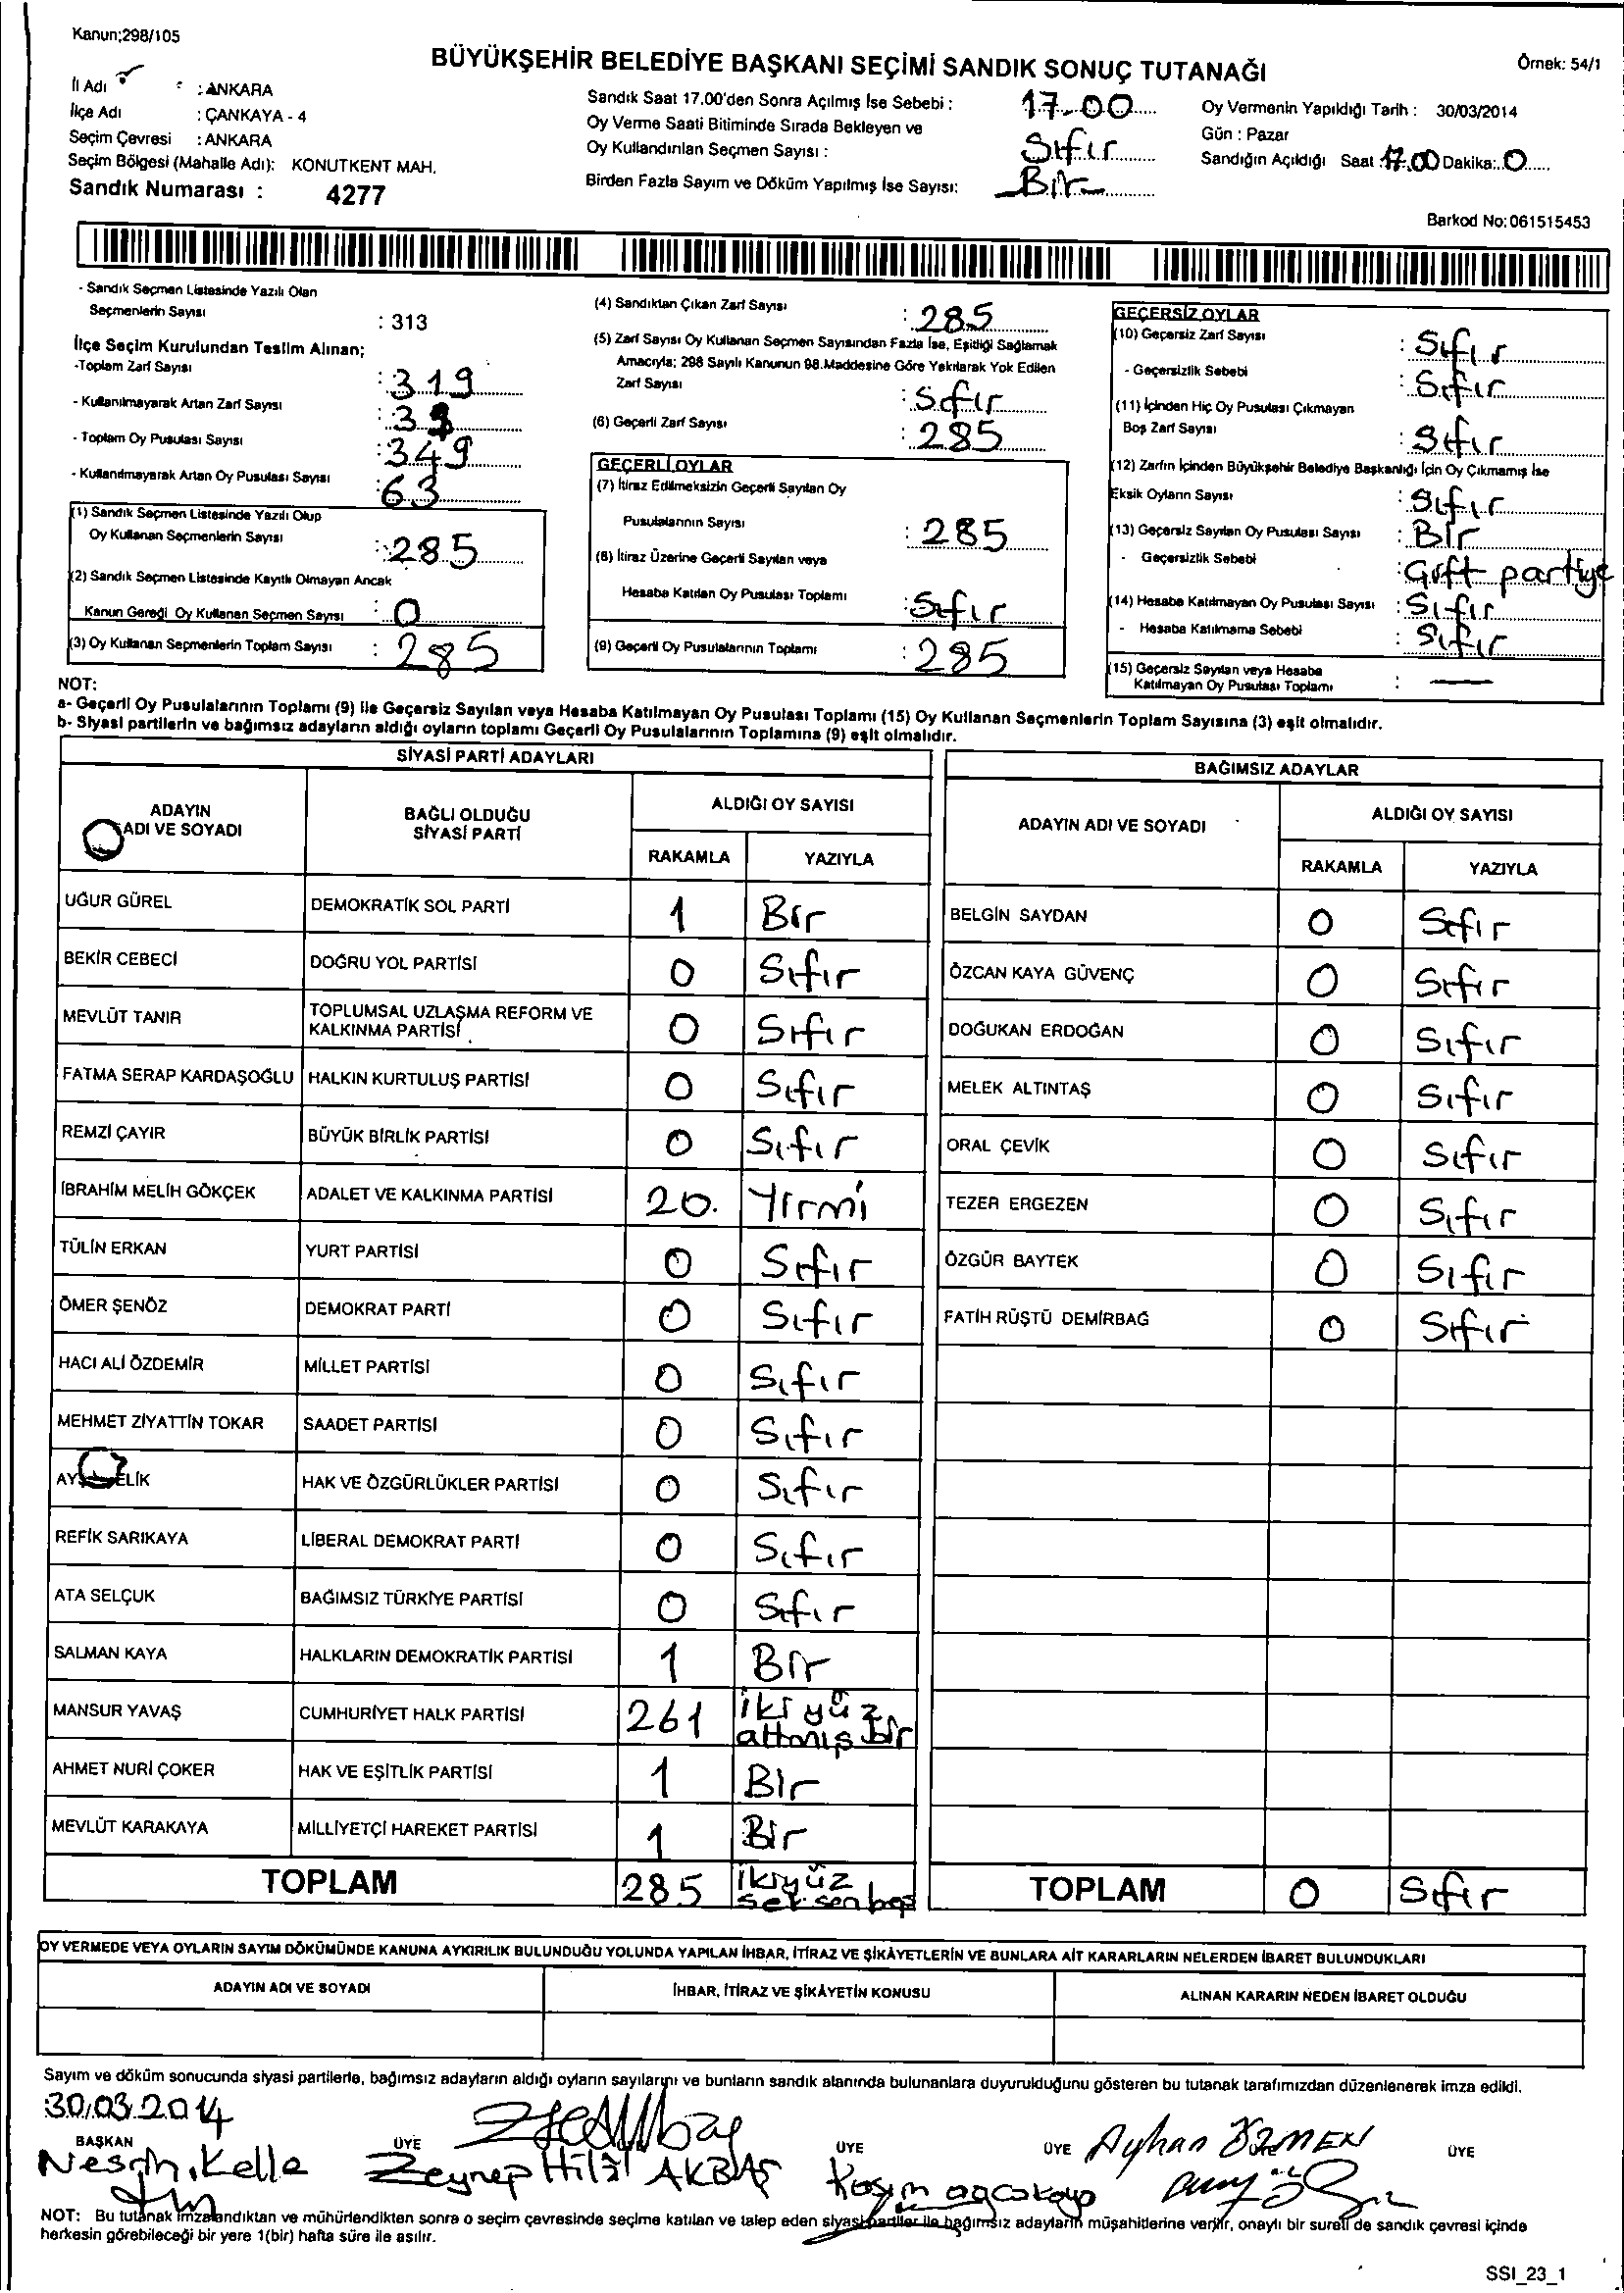 Kanun;298/105
BÜYÜKŞEHİR BELEDİYE BAŞKANI SEÇİMİ SANDIK SONUÇ TUTANAĞI
Örnek: 54/1
İl Adı : ANKARA
İlçe Adı : ÇANKAYA - 4
Seçim Çevresi : ANKARA
Seçim Bölgesi (Mahalle Adı): KONUTKENT MAH.
Sandık Numarası : 4277
Sandık Saat 17.00'den Sonra Açılmış İse Sebebi : 17.00
Oy Verme Saati Bitiminde Sırada Bekleyen ve
Oy Kullandırılan Seçmen Sayısı : Sıfır
Birden Fazla Sayım ve Döküm Yapılmış İse Sayısı: Bir
Oy Vermenin Yapıldığı Tarih : 30/03/2014
Gün : Pazar
Sandığın Açıldığı Saat 17.00 Dakika: 0
Barkod No: 061515453
- Sandık Seçmen Listesinde Yazılı Olan
Seçmenlerin Sayısı : 313
İlçe Seçim Kurulundan Teslim Alınan;
-Toplam Zarf Sayısı : 319
- Kullanılmayarak Artan Zarf Sayısı :
- Toplam Oy Pusulası Sayısı : 349
- Kullanılmayarak Artan Oy Pusulası Sayısı : 63
(1) Sandık Seçmen Listesinde Yazılı Olup
Oy Kullanan Seçmenlerin Sayısı : 285
(2) Sandık Seçmen Listesinde Kayıtlı Olmayan Ancak
Kanun Gereği Oy Kullanan Seçmen Sayısı : 0
(3) Oy Kullanan Seçmenlerin Toplam Sayısı : 285
(4) Sandıktan Çıkan Zarf Sayısı : 285
(5) Zarf Sayısı Oy Kullanan Seçmen Sayısından Fazla İse, Eşitliği Sağlamak
Amacıyla; 298 Sayılı Kanunun 98.Maddesine Göre Yakılarak Yok Edilen
Zarf Sayısı : Sıfır
(6) Geçerli Zarf Sayısı : 285
GEÇERLİ OYLAR
(7) İtiraz Edilmeksizin Geçerli Sayılan Oy
Pusulalarının Sayısı : 285
(8) İtiraz Üzerine Geçerli Sayılan veya
Hesaba Katılan Oy Pusulası Toplamı : Sıfır
(9) Geçerli Oy Pusulalarının Toplamı : 285
GEÇERSİZ OYLAR
(10) Geçersiz Zarf Sayısı : Sıfır
- Geçersizlik Sebebi : Sıfır
(11) İçinden Hiç Oy Pusulası Çıkmayan
Boş Zarf Sayısı : Sıfır
(12) Zarfın İçinden Büyükşehir Belediye Başkanlığı İçin Oy Çıkmamış İse
Eksik Oyların Sayısı : Sıfır
(13) Geçersiz Sayılan Oy Pusulası Sayısı : Bir
- Geçersizlik Sebebi : Çift partiye
(14) Hesaba Katılmayan Oy Pusulası Sayısı : Sıfır
- Hesaba Katılmama Sebebi : Sıfır
(15) Geçersiz Sayılan veya Hesaba
Katılmayan Oy Pusulası Toplamı : —
NOT:
a- Geçerli Oy Pusulalarının Toplamı (9) ile Geçersiz Sayılan veya Hesaba Katılmayan Oy Pusulası Toplamı (15) Oy Kullanan Seçmenlerin Toplam Sayısına (3) eşit olmalıdır.
b- Siyasi partilerin ve bağımsız adayların aldığı oyların toplamı Geçerli Oy Pusulalarının Toplamına (9) eşit olmalıdır.
SİYASİ PARTİ ADAYLARI
ADAYIN
ADI VE SOYADI
BAĞLI OLDUĞU
SİYASİ PARTİ
ALDIĞI OY SAYISI
RAKAMLA YAZIYLA
UĞUR GÜREL DEMOKRATİK SOL PARTİ 1 Bir
BEKİR CEBECİ DOĞRU YOL PARTİSİ 0 Sıfır
MEVLÜT TANIR TOPLUMSAL UZLAŞMA REFORM VE
KALKINMA PARTİSİ 0 Sıfır
FATMA SERAP KARDAŞOĞLU HALKIN KURTULUŞ PARTİSİ 0 Sıfır
REMZİ ÇAYIR BÜYÜK BİRLİK PARTİSİ 0 Sıfır
İBRAHİM MELİH GÖKÇEK ADALET VE KALKINMA PARTİSİ 20. Yirmi
TÜLİN ERKAN YURT PARTİSİ 0 Sıfır
ÖMER ŞENÖZ DEMOKRAT PARTİ 0 Sıfır
HACI ALİ ÖZDEMİR MİLLET PARTİSİ 0 Sıfır
MEHMET ZİYATTİN TOKAR SAADET PARTİSİ 0 Sıfır
HAK VE ÖZGÜRLÜKLER PARTİSİ 0 Sıfır
REFİK SARIKAYA LİBERAL DEMOKRAT PARTİ 0 Sıfır
ATA SELÇUK BAĞIMSIZ TÜRKİYE PARTİSİ 0 Sıfır
SALMAN KAYA HALKLARIN DEMOKRATİK PARTİSİ 1 Bir
MANSUR YAVAŞ CUMHURİYET HALK PARTİSİ 261 iki yüz
altmış bir
AHMET NURİ ÇOKER HAK VE EŞİTLİK PARTİSİ 1 Bir
MEVLÜT KARAKAYA MİLLİYETÇİ HAREKET PARTİSİ 1 Bir
TOPLAM 285 ikiyüz
seksenbeş
BAĞIMSIZ ADAYLAR
ADAYIN ADI VE SOYADI
ALDIĞI OY SAYISI
RAKAMLA YAZIYLA
BELGİN SAYDAN 0 Sıfır
ÖZCAN KAYA GÜVENÇ 0 Sıfır
DOĞUKAN ERDOĞAN 0 Sıfır
MELEK ALTINTAŞ 0 Sıfır
ORAL ÇEVİK 0 Sıfır
TEZER ERGEZEN 0 Sıfır
ÖZGÜR BAYTEK 0 Sıfır
FATİH RÜŞTÜ DEMİRBAĞ 0 Sıfır
TOPLAM 0 Sıfır
OY VERMEDE VEYA OYLARIN SAYIM DÖKÜMÜNDE KANUNA AYKIRILIK BULUNDUĞU YOLUNDA YAPILAN İHBAR, İTİRAZ VE ŞİKÂYETLERİN VE BUNLARA AİT KARARLARIN NELERDEN İBARET BULUNDUKLARI
ADAYIN ADI VE SOYADI İHBAR, İTİRAZ VE ŞİKÂYETİN KONUSU ALINAN KARARIN NEDEN İBARET OLDUĞU
Sayım ve döküm sonucunda siyasi partilerle, bağımsız adayların aldığı oyların sayılarını ve bunların sandık alanında bulunanlara duyurulduğunu gösteren bu tutanak tarafımızdan düzenlenerek imza edildi.
30.03.2014
BAŞKAN ÜYE ÜYE ÜYE ÜYE
Zeynep Hilâl AKBAŞ
Ayhan ÖZMEN
NOT: Bu tutanak imzalandıktan ve mühürlendikten sonra o seçim çevresinde seçime katılan ve talep eden siyasi partiler ile bağımsız adayların müşahitlerine verilir, onaylı bir sureti de sandık çevresi içinde
herkesin görebileceği bir yere 1(bir) hafta süre ile asılır.
SSI_23_1